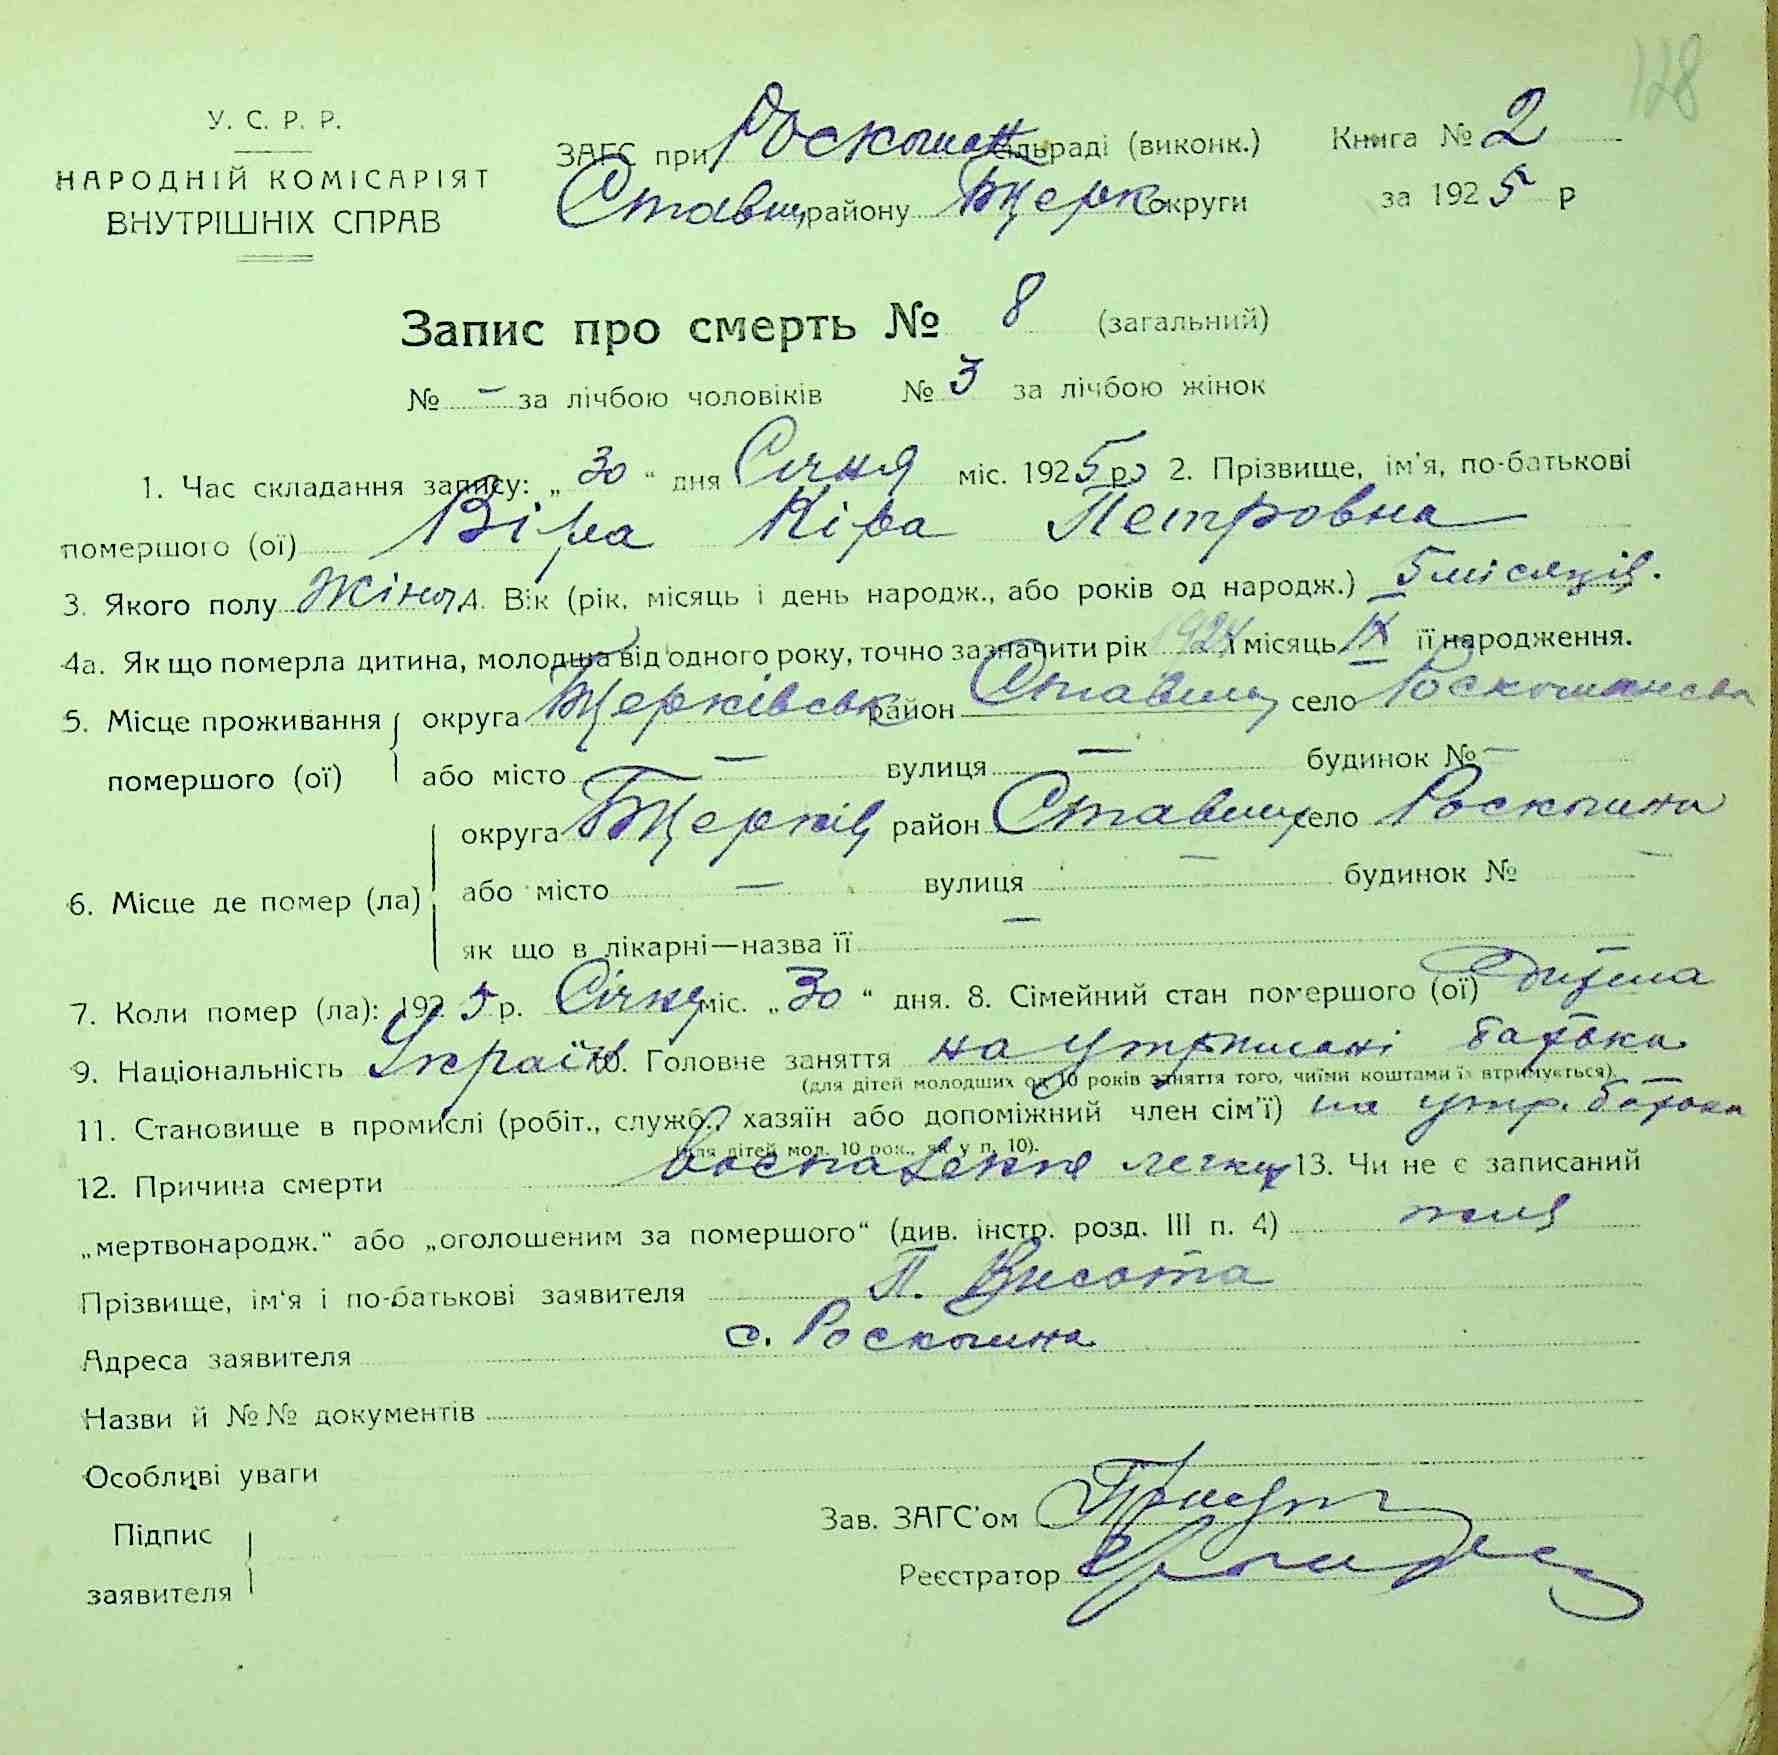 128
У. С. Р. Р.
НАРОДНІЙ КОМІСАРІЯТ
ВНУТРІШНІХ СПРАВ
ЗАГС при Роскошан сільраді (виконк.) Книга № 2
Ставищ району Тщерк округи за 1925 р
Запис про смерть № 8 (загальний)
№ — за лічбою чоловіків № 3 за лічбою жінок
1. Час складання запису: „30“ дня Січня міс. 1925 р. 2. Прізвище, ім'я, по-батькові
помершого (ої) Віра Кіра Петровна
3. Якого полу Жіноч 4. Вік (рік, місяць і день народж., або років од народж.) 5 місяців.
4а. Як що померла дитина, молодша від одного року, точно зазначити рік 1924 і місяць IX її народження.
5. Місце проживання округа район Ставищ село
помершого (ої) або місто — вулиця — будинок № —
округа район Ставищ село Роскошна
6. Місце де помер (ла) або місто — вулиця — будинок № —
як що в лікарні—назва її —
7. Коли помер (ла): 1925 р. Січня міс. „30“ дня. 8. Сімейний стан помершого (ої) Дитина
9. Національність Україн 10. Головне заняття на утримані батька
(для дітей молодших од 10 років заняття того, чиїми коштами їх втримується).
11. Становище в промислі (робіт., служб., хазяїн або допоміжний член сім'ї) на утр. батька
(для дітей мол. 10 рок., як у п. 10).
12. Причина смерти воспалення легких 13. Чи не є записаний
„мертвонародж.“ або „оголошеним за помершого“ (див. інстр. розд. III п. 4)
Прізвище, ім'я і по-батькові заявителя П. Висота
Адреса заявителя с. Роскошна
Назви й №№ документів
Особливі уваги
Підпис
заявителя
Зав. ЗАГС'ом
Реєстратор